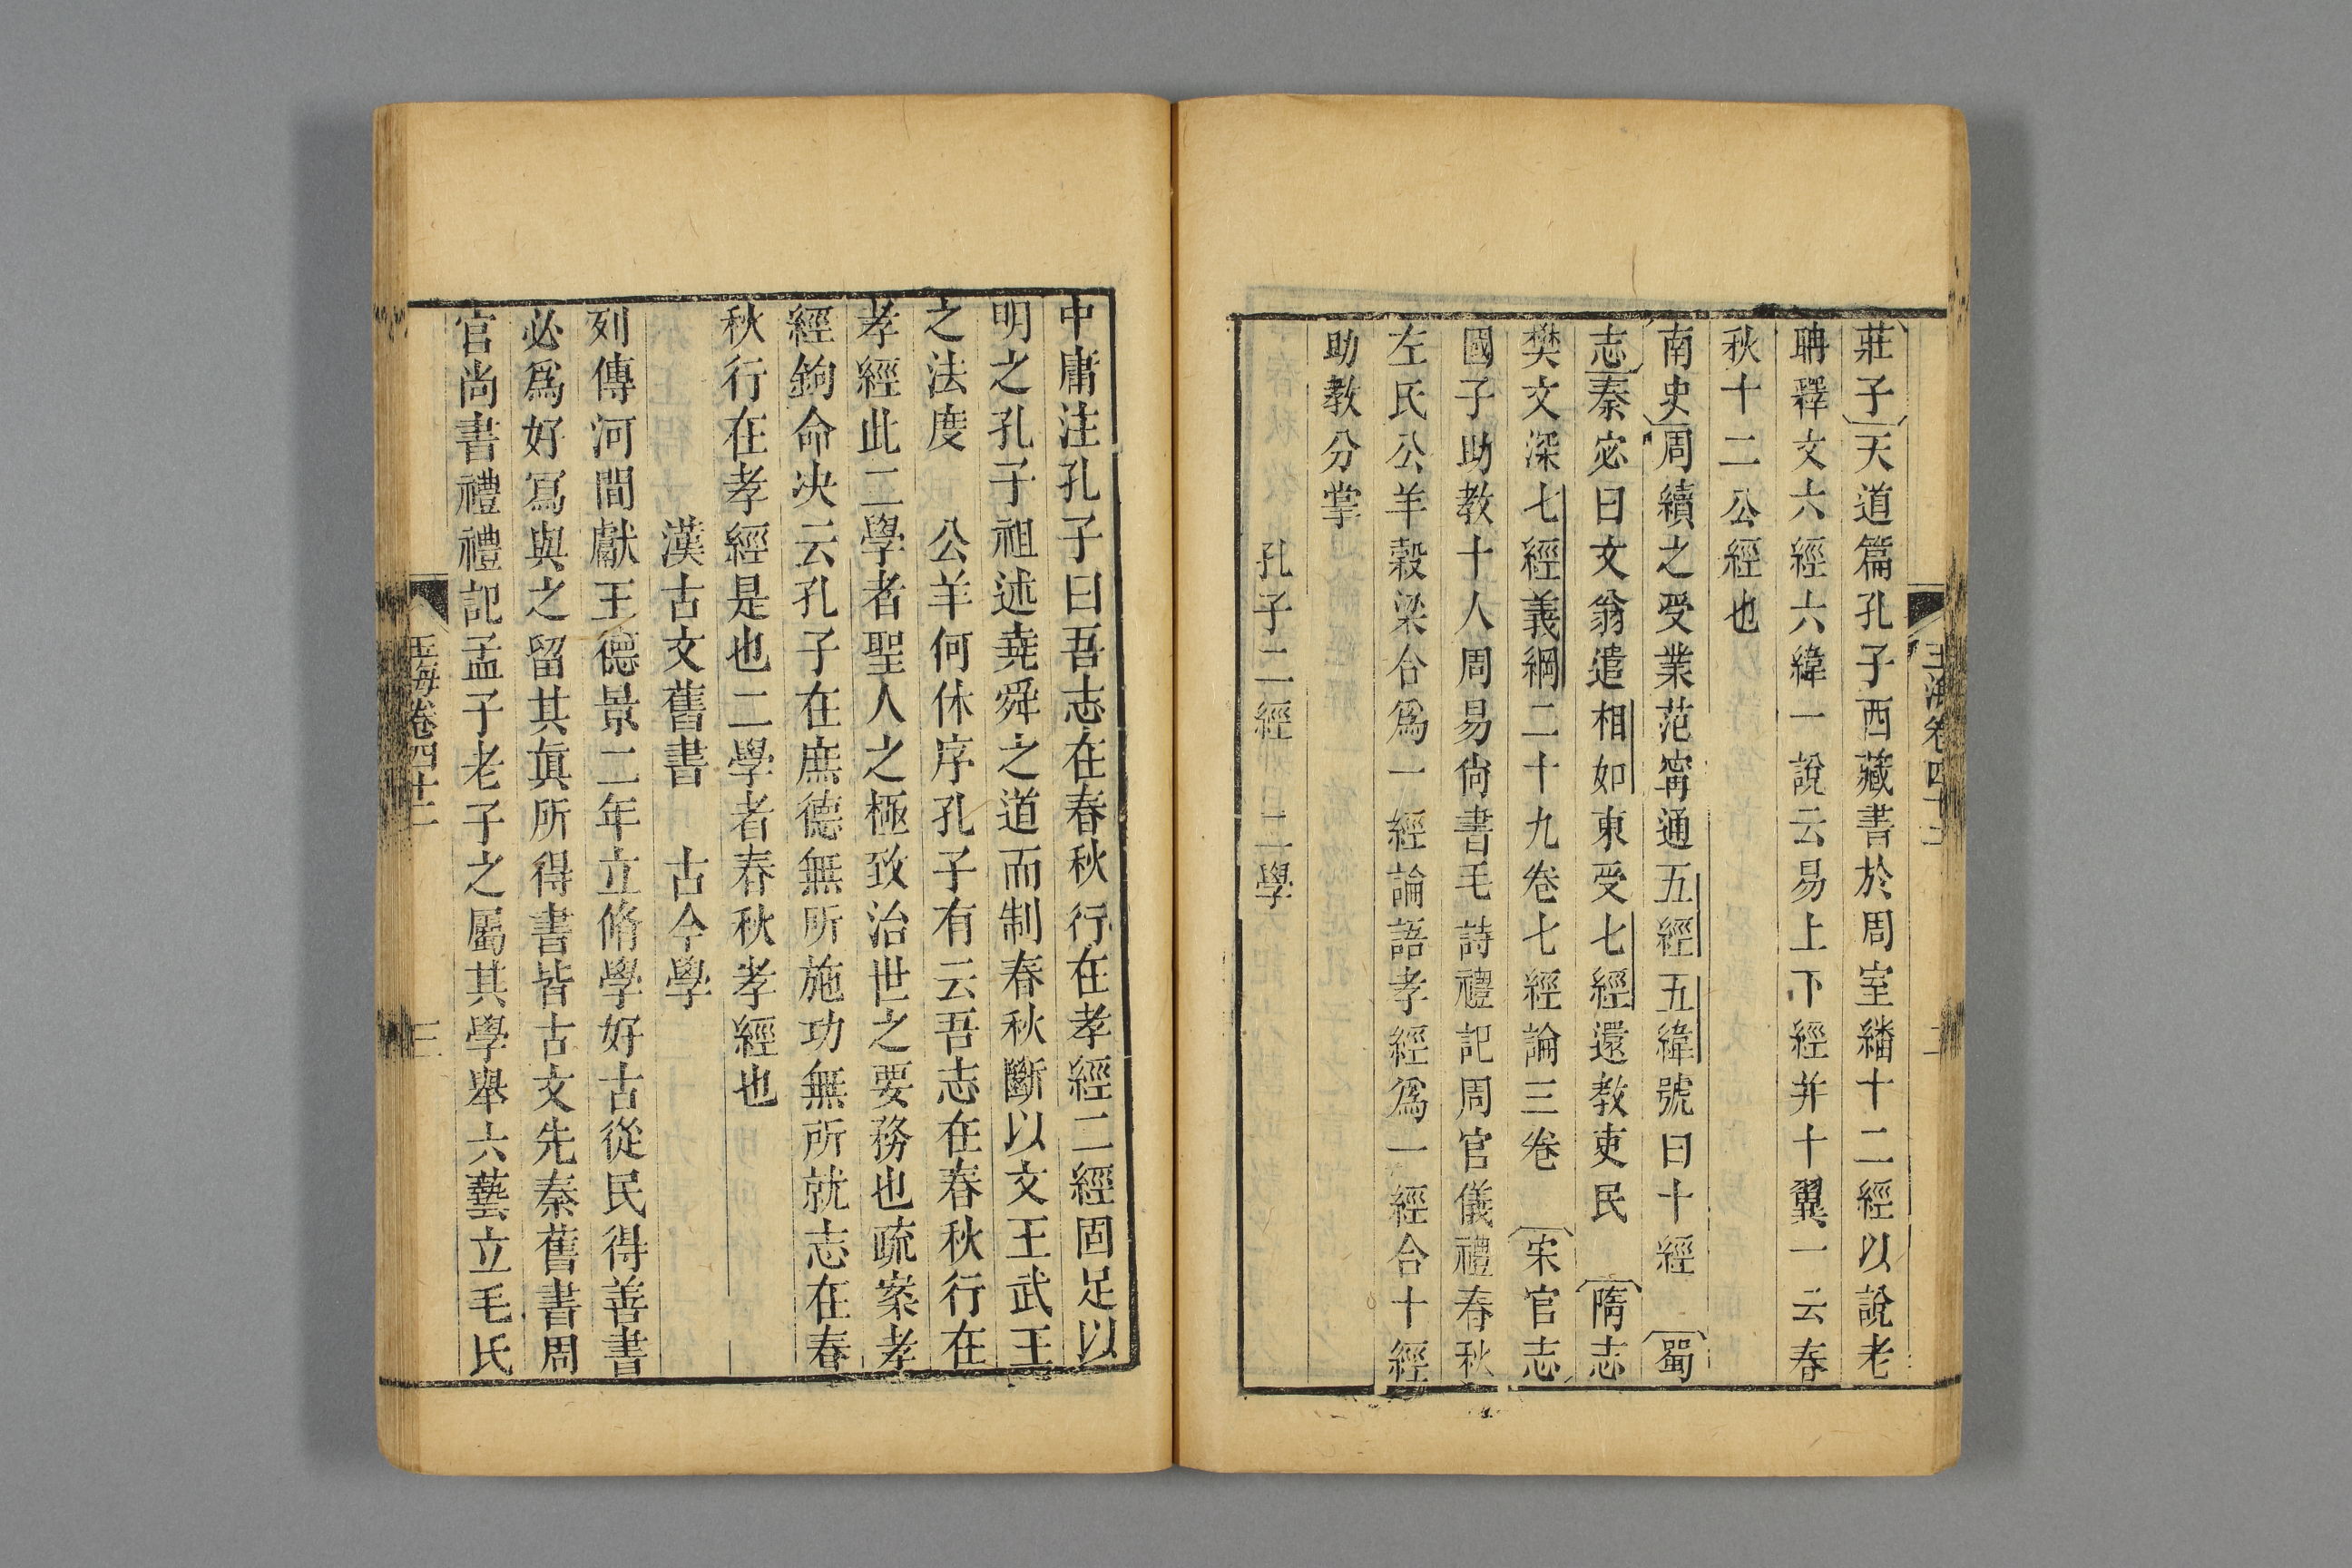 莊子天道篇孔子西藏書於周室繙十二經以說老
聃釋文六經六緯一說云易上下經并十翼一云春
秋十二公經也
南史周續之受業范甯通五經五緯號曰十經 蜀
志秦宓曰文翁遣相如東受七經還教吏民 隋志
樊文深七經義綱二十九卷七經論三卷 宋官志
國子助教十人周易尙書毛詩禮記周官儀禮春秋
左氏公羊穀梁合爲一經論語孝經爲一經合十經
助教分掌
孔子二經 二學
中庸注孔子曰吾志在春秋行在孝經二經固足以
明之孔子祖述堯舜之道而制春秋斷以文王武王
之法度 公羊何休序孔子有云吾志在春秋行在
孝經此二學者聖人之極致治世之要務也疏案孝
經鉤命決云孔子在庶德無所施功無所就志在春
秋行在孝經是也二學者春秋孝經也
漢古文舊書 古今學
列傳河間獻王德景二年立脩學好古從民得善書
必爲好寫與之留其眞所得書皆古文先秦舊書周
官尚書禮禮記孟子老子之屬其學舉六藝立毛氏
玉海卷四十二 三